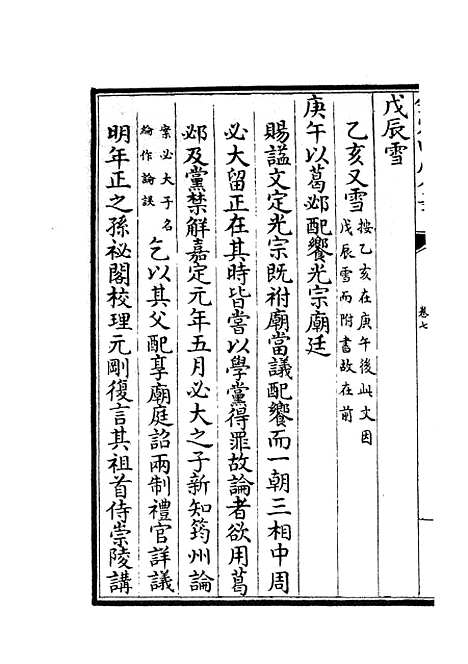 戊辰雪
乙亥又雪按乙亥在庚午後此文因戊辰雪而附書故在前
庚午以葛邲配饗光宗廟廷
賜謚文定光宗既祔廟當議配饗而一朝三相中周
必大留正在其時皆嘗以學黨得罪故論者欲用葛
邲及黨禁解嘉定元年五月必大之子新知筠州論
案必大子名綸作論誤乞以其父配享廟庭詔兩制禮官詳議
明年正之孫祕閣校理元剛復言其祖首侍崇陵講
卷七